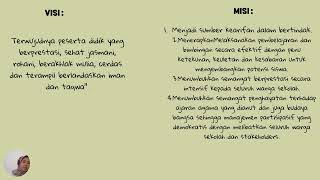 VISI :
Terwujudnya peserta didik yang
berprestasi, sehat jasmani,
rohani, berakhlak mulia, cerdas
dan terampil berlandaskan iman
dan taqwa"
MISI :
1. Menjadi sumber kearifan dalam bertindak.
2.MenerapkanMelaksanakan pembelajaran dan
bimbingan secara efektif dengan penu
ketekunan, keuletan dan kesabaran untuk
mengembangkan potensi siswa.
3.Menumbuhkan semangat berprestasi secara
intensif kepada seluruh warga sekolah.
4.Menumbuhkan semangat penghayatan terhadap
ajaran agama yang dianut dan juga budaya
bangsa sehingga manajemen partisipasif yang
demokratis dengan melibatkan seluruh warga
sekolah dan stakeholders.